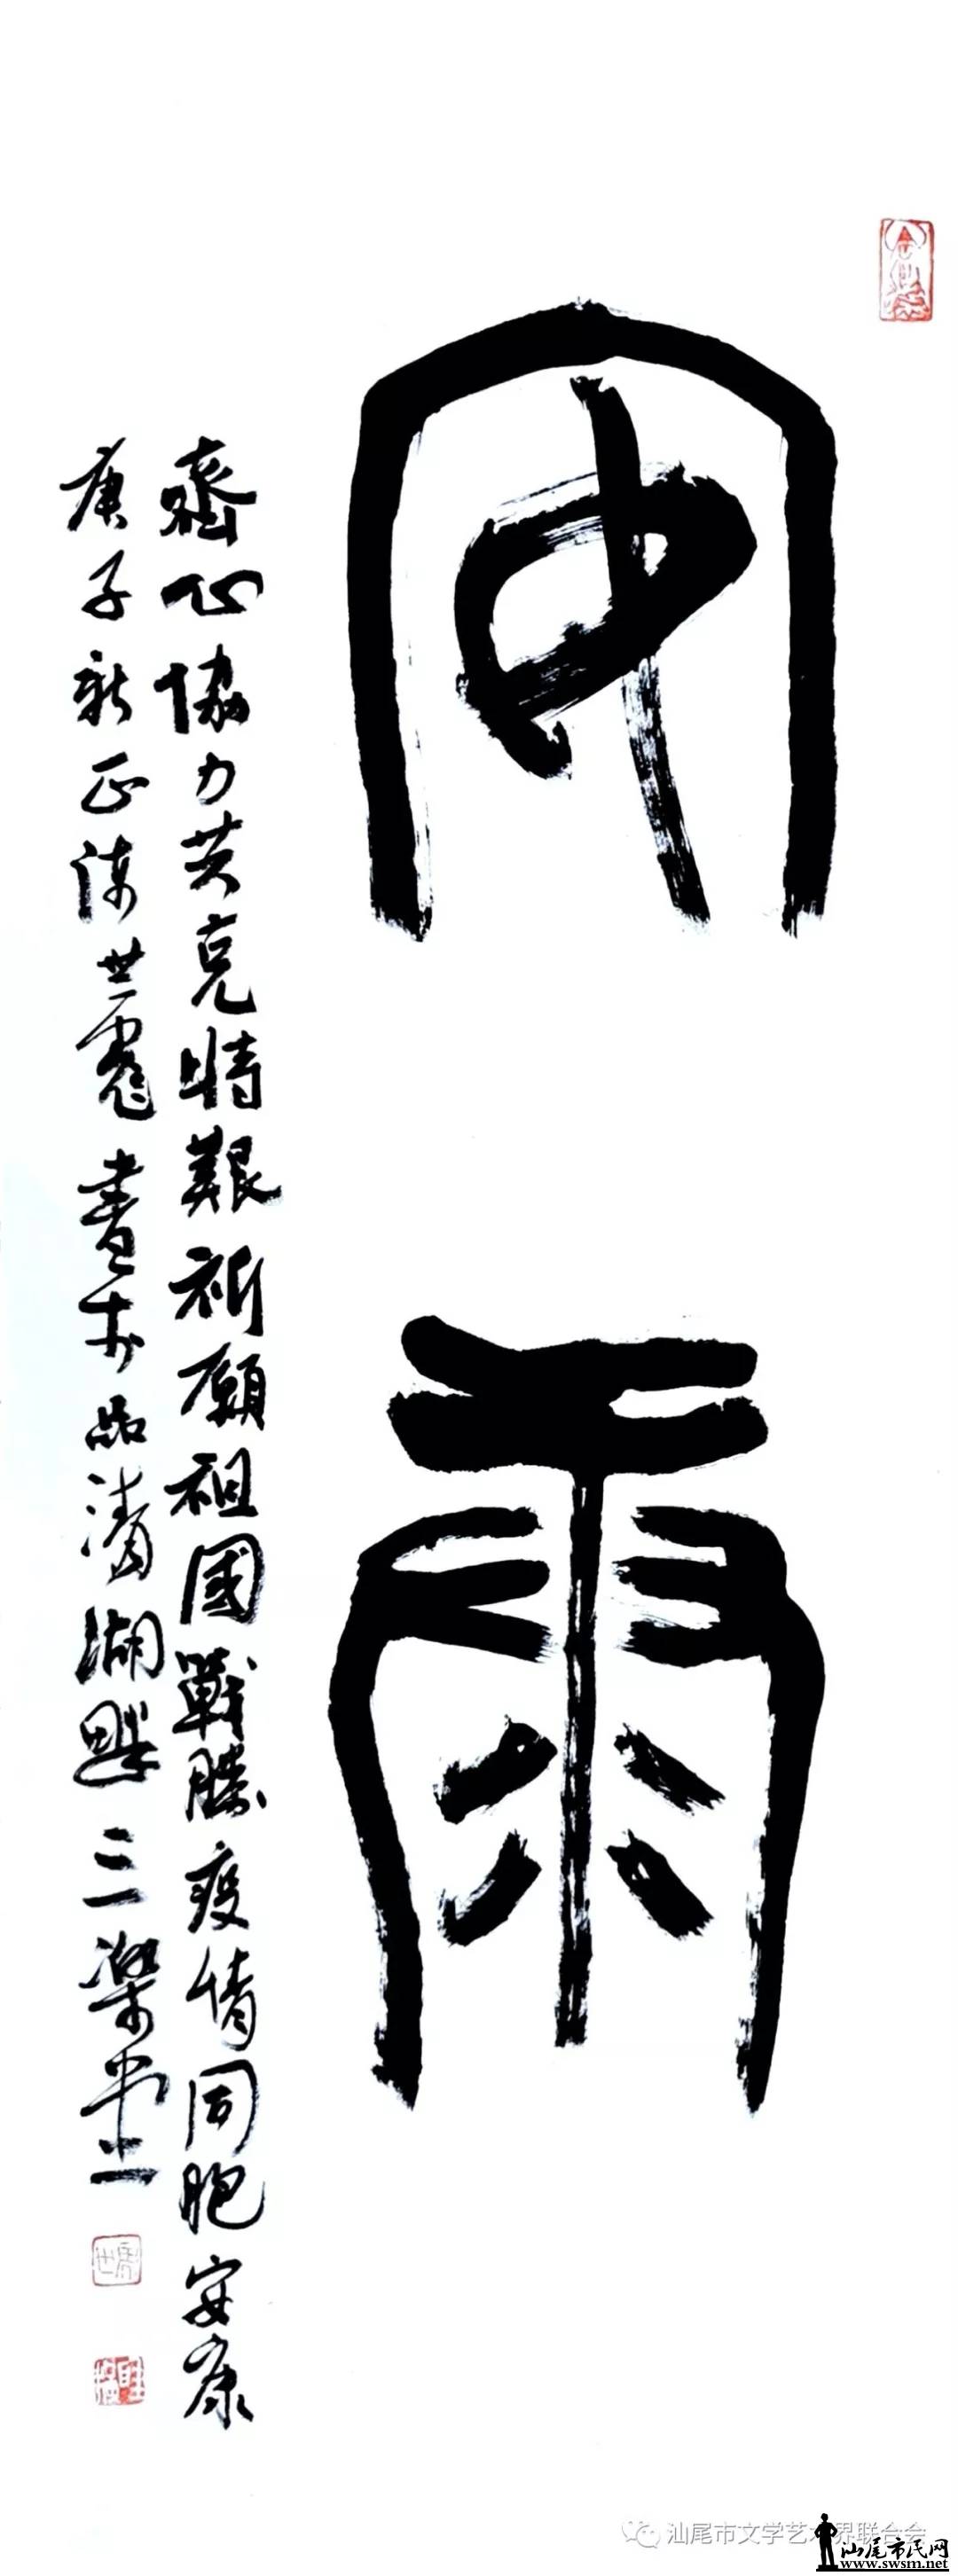 安康
齊心協力共克時艱祈願祖國戰勝疫情同胞安康
庚子新正陳世書於品清湖畔三樂堂
汕尾市文学艺术界联合会
汕尾市民网
www.swsm.net